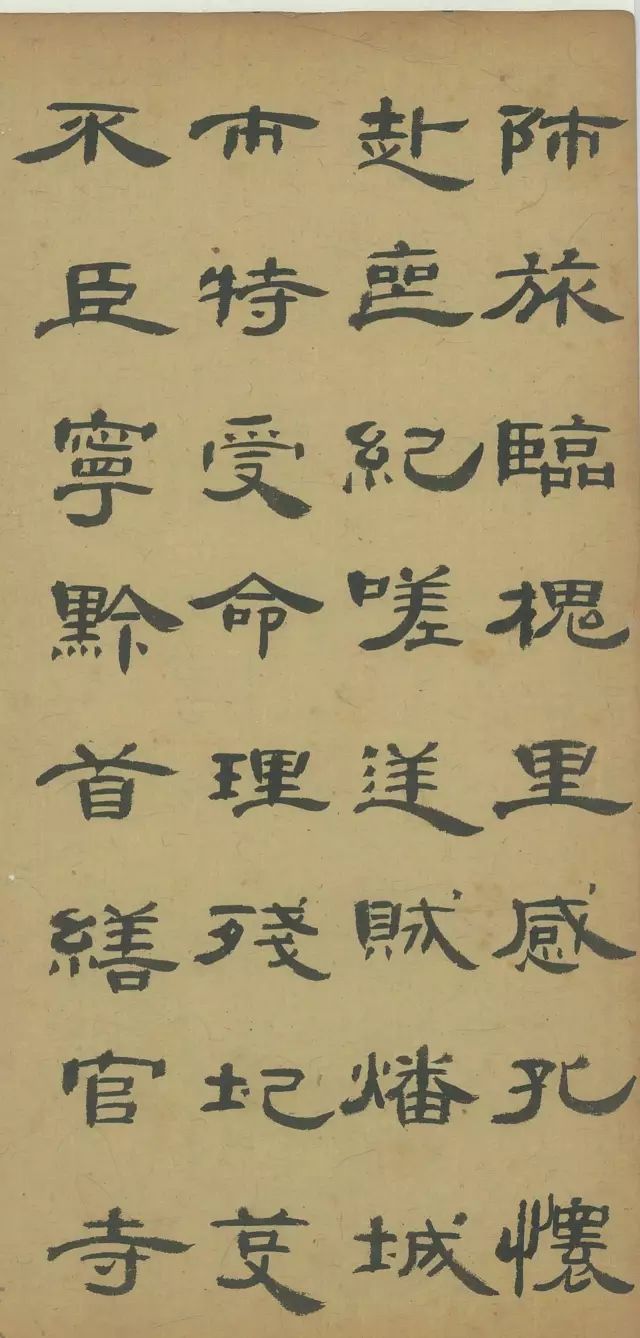 師旅臨槐里感孔懷
赴喪紀嗟逆賊燔城
市特受命理殘圮芟
不臣寧黔首繕官寺